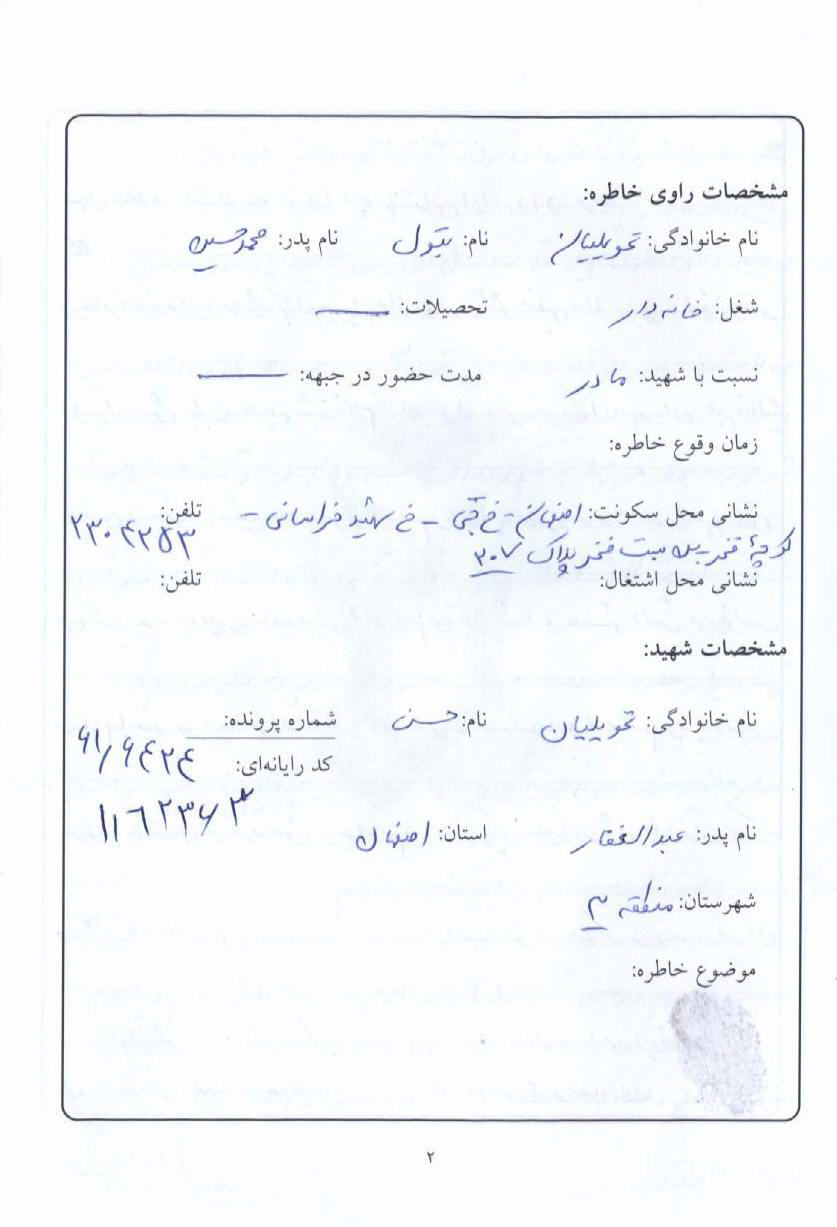 مشخصات راوی خاطره:
نام خانوادگی: تحویلیان نام: بتول نام پدر: محمدحسین
شغل: خانه دار تحصیلات: ــــــ
نسبت با شهید: مادر مدت حضور در جبهه: ــــــ
زمان وقوع خاطره:
نشانی محل سکونت: اصفهان - خ - خ شهید خراسانی - تلفن:
کوچهٔ فخر - بن بست فخر پلاک ۳۰۷ ۲۳۰۴۲۵۳
نشانی محل اشتغال: تلفن:
مشخصات شهید:
نام خانوادگی: تحویلیان نام: حسن شماره پرونده:
۶۱/۶۴۲۴
کد رایانه‌ای:
۱۱۶۲۳۶۳
نام پدر: عبدالغفار استان: اصفهان
شهرستان: منطقه ۳
موضوع خاطره:
۲